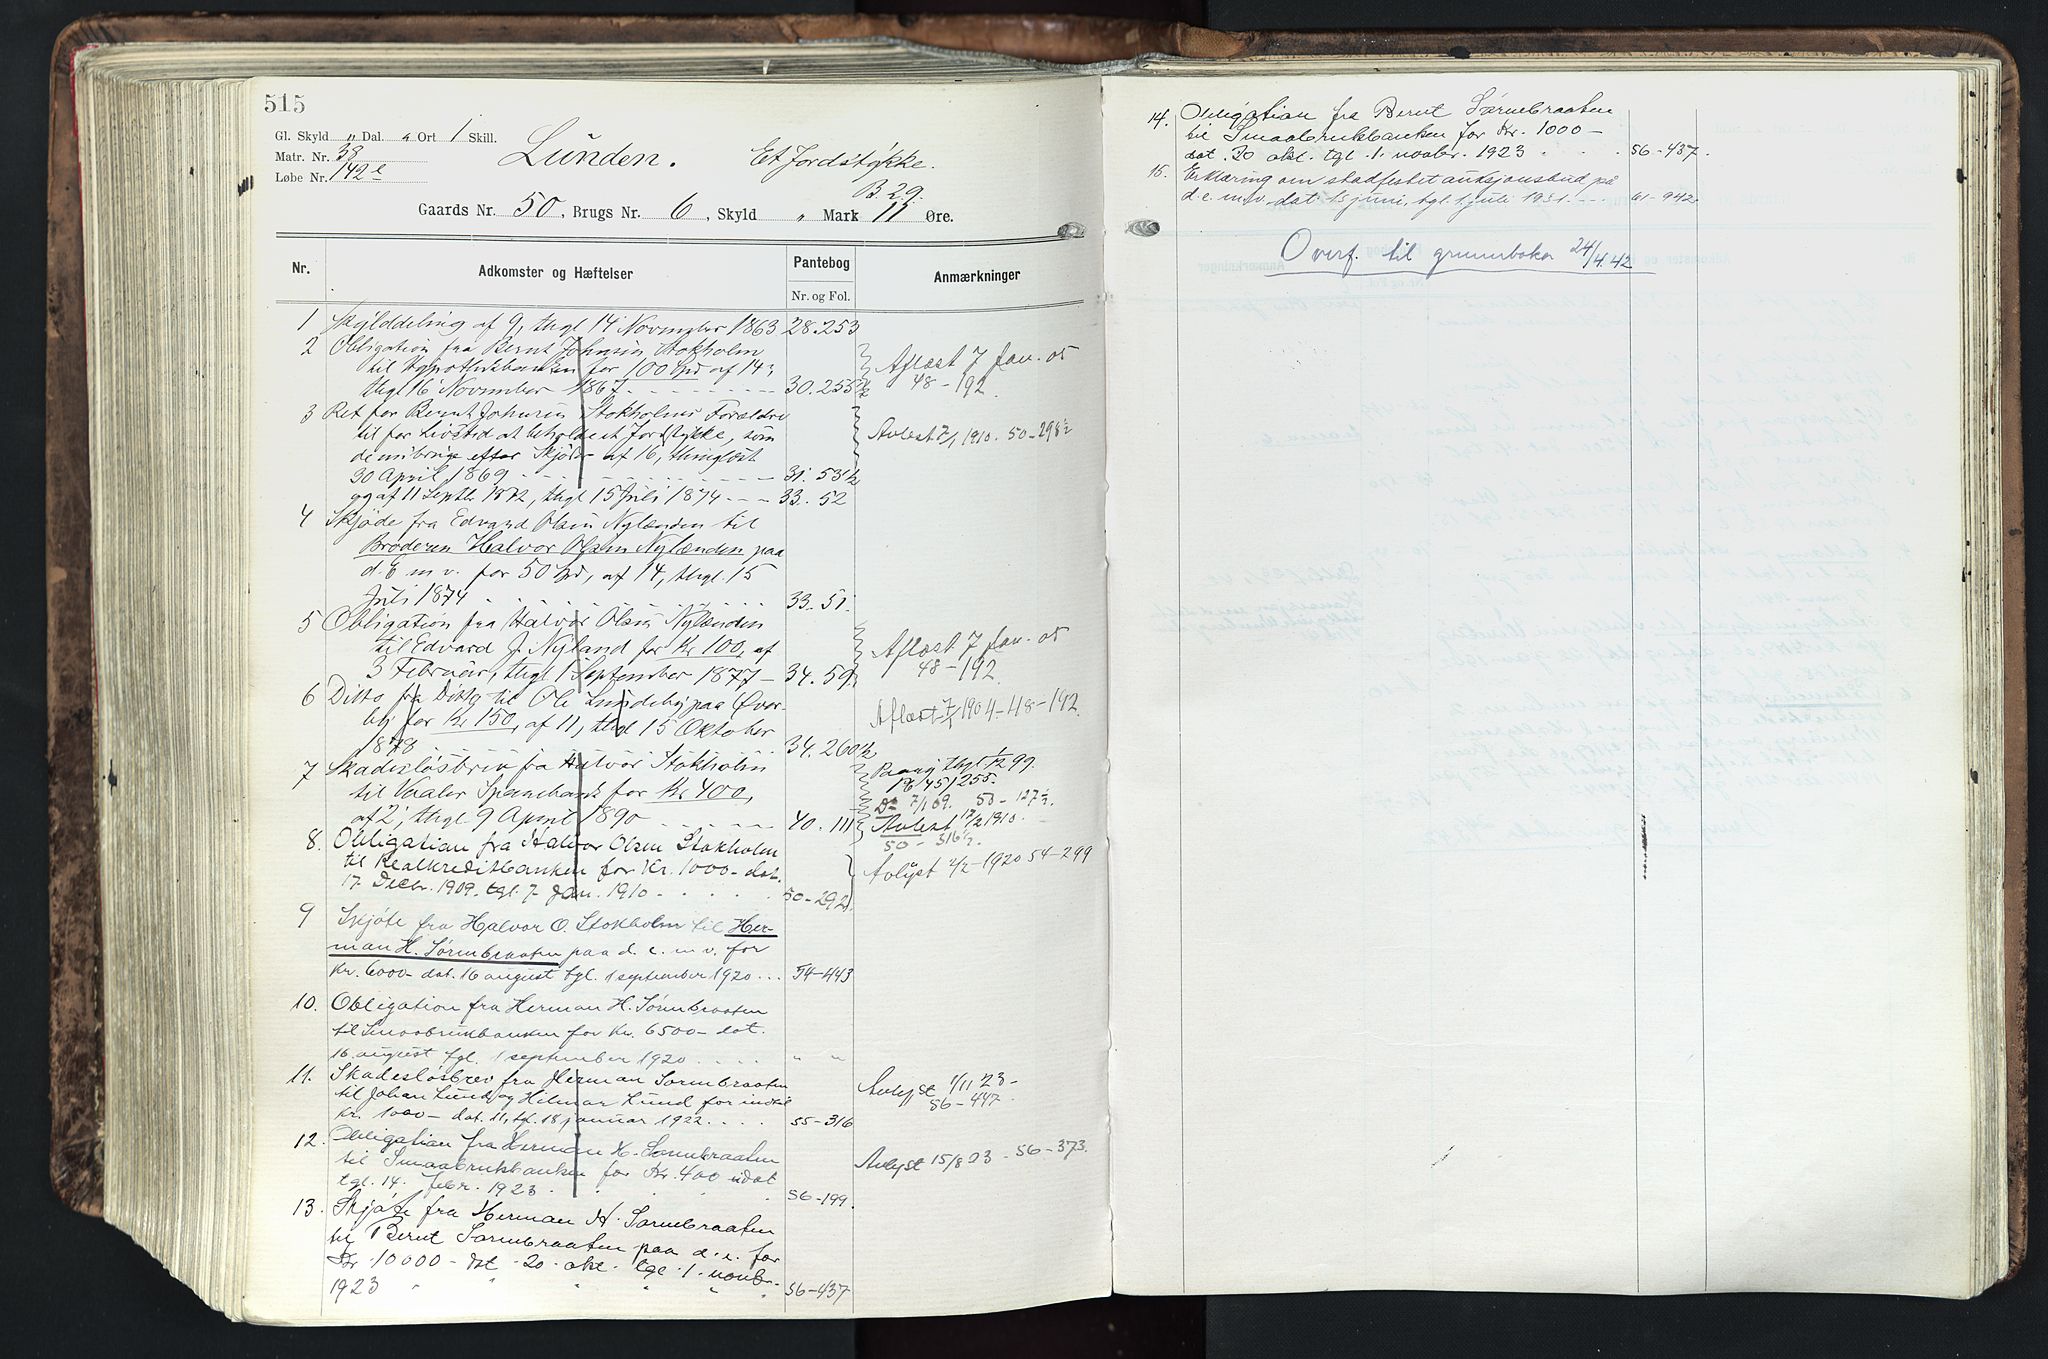 515
Gl. Skyld " Dal. " Ort 1 Skill.
Matr. Nr. 38
Løbe Nr. 142e
Lunden. Et Jordstykke.
B. 29.
Gaards Nr. 50, Brugs Nr. 6, Skyld " Mark 11 Øre.
Nr. Adkomster og Hæftelser Pantebog Anmærkninger
Nr. og Fol.
1 Skylddeling af 9, thgl 14 November 1863 28.253
2 Obligation fra Bernt Johnsen Stokholm
til Hypothekbanken for 100 Spd af 14,
thgl 16 November 1867 30.255½
Aflæst 7 Jan. 05
48-192.
3 Ret for Bernt Johnsen Stokholms Forældre
til for Livstid at beholde et Jordstykke, som
de nu bruge efter Skjøder af 16, thinglæst
30 April 1869 31.53½
og af 11 Septbr 1872, thgl 15 Juli 1874 33.52
Avlest 7/1 1910. 50-298½
4 Skjøde fra Edvard Olsen Nylænden til
Broderen Halvor Olsen Nylænden paa
d. E m v. for 50 Spd, af 14, thgl. 15
Juli 1874 33.51.
5 Obligation fra Halvor Olsen Nylænden
til Edvard J. Nyland for Kr 100, af
3 Februar, thgl 1 September 1877 - 34.59.
Aflæst 7 Jan. 05
48-192.
6 Ditto fra Ditto til Ole Lundeby paa Øver-
by for Kr 150, af 11, thgl 15 Oktober
1878 34.260½
Aflæst 7/1 1904-48-192.
7 Skadesløsbrev fra Halvor Stokholm
til Vaaler Sparebank for Kr 400,
af 2, thgl 9 April 1890 40.111
Paateg. thgl 1/12 99.
45/255.
Do 7/1 09. 50-127½.
Avlest 17/2 1910.
50-316½.
8. Obligation fra Halvor Olsen Stokholm
til Realkreditbanken for Kr. 1000- dat.
17. Decbr. 1909. tgl. 7. Jan. 1910 50-292.
Avlyst 2/2-1920 54-299
9 Skjøte fra Halvor O. Stokholm til Her-
man H. Sørmbraaten paa d. e. m. v. for
Kr. 6000- dat. 16 august tgl. 1 september 1920 ... 54-443
10. Obligation fra Herman H. Sørmbraaten
til Smaabrukbanken for Kr. 6500- dat.
16. august tgl. 1 september 1920 .... " "
11. Skadesløsbrev fra Herman Sørmbraaten
til Johan Lund og Hilmar Lund for indtil
Kr. 1000- dat. 11, tgl. 18 januar 1922.... 55-316
Avlyst 1/11 23-
56-447.
12. Obligation fra Herman H. Sørmbraaten
til Smaabrukbanken for Kr. 400 udat
tgl. 14. febr. 1923. 56-199.
Avlyst 15/8 23 - 56-373.
13. Skjøte fra Herman H. Sørmbraaten
til Bernt Sørmbraaten paa d. e. for
Kr. 10000- dat. 20. okt. tgl. 1. novbr.
1923 56-437
14. Obligation fra Bernt Sørmbraaten
til Smaabrukbanken for Kr. 1000-
dat. 20 okt. tgl. 1. novbr. 1923 56-437.
15. Erklæring om stadfestet auksjonsbud på
d. e. m. v. dat. 13 juni, tgl. 1 juli 1931. 61-942.
Overf. til grunnboka 24/4.42